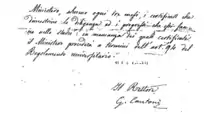 Ministero, almeno ogni tre mesi, i certificati che
dimostrino la diligenza ed i progressi che fanno
nello studio, in mancanza dei quali certificati
il Ministero provvederà a termini dell'art. 94 del
Regolamento universitario.
Il Rettore
G. Cantoni